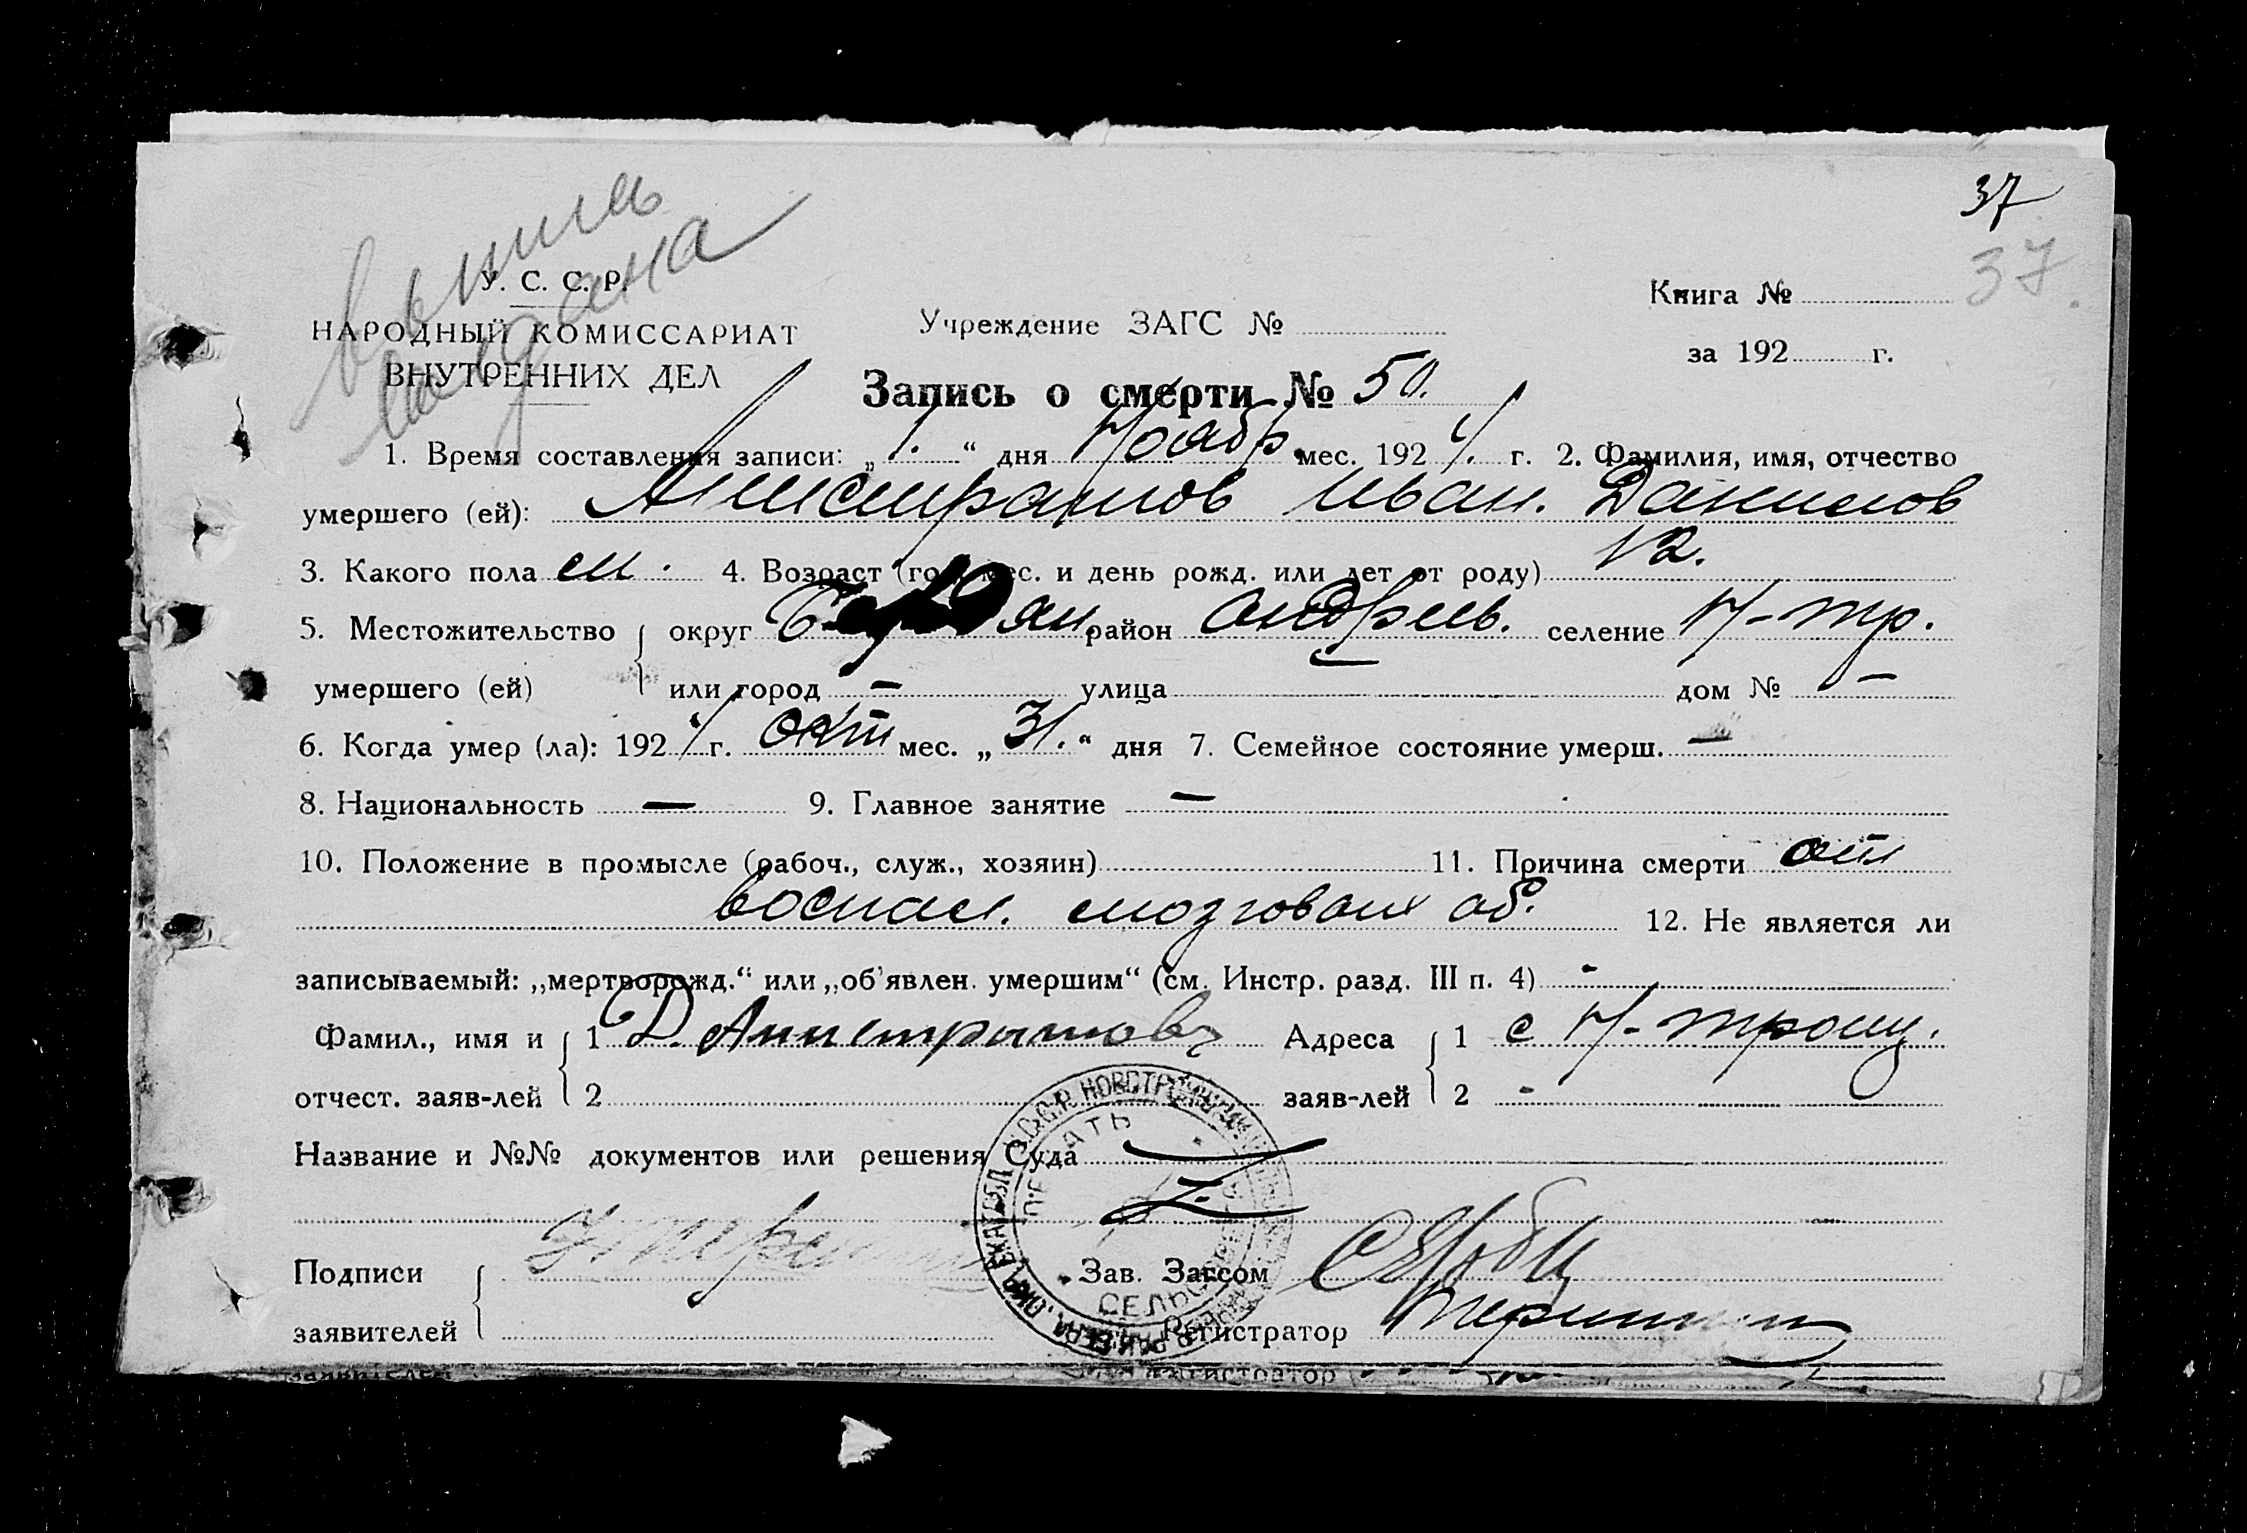 37
37.
выпись
выдана
У. С. С. Р.
НАРОДНЫЙ КОМИССАРИАТ
ВНУТРЕННИХ ДЕЛ
Учреждение ЗАГС №
Книга №
за 192 г.
Запись о смерти № 50.
1. Время составления записи: „ 1. “ дня Ноябр. мес. 1924 г. 2. Фамилия, имя, отчество
умершего (ей): Анистратов Иван. Данилов
3. Какого пола м. 4. Возраст (год, мес. и день рожд. или лет от роду) 12.
5. Местожительство округ Бердян район Андреев. селение Н-тр.
умершего (ей) или город — улица дом № —
6. Когда умер (ла): 1924 г. окт мес. „ 31. “ дня 7. Семейное состояние умерш. —
8. Национальность — 9. Главное занятие —
10. Положение в промысле (рабоч., служ., хозяин) 11. Причина смерти от
воспал. мозговых об. 12. Не является ли
записываемый: „мертворожд.“ или „об'явлен. умершим“ (см. Инстр. разд. III п. 4) -
Фамил., имя и 1 Д. Анистратов Адреса 1 с Н-троиц.
отчест. заяв-лей 2 заяв-лей 2 -
Название и №№ документов или решения Суда
Подписи Зав. Загсом
заявителей Регистратор
ПЕЧАТЬ
заявителей Регистратор